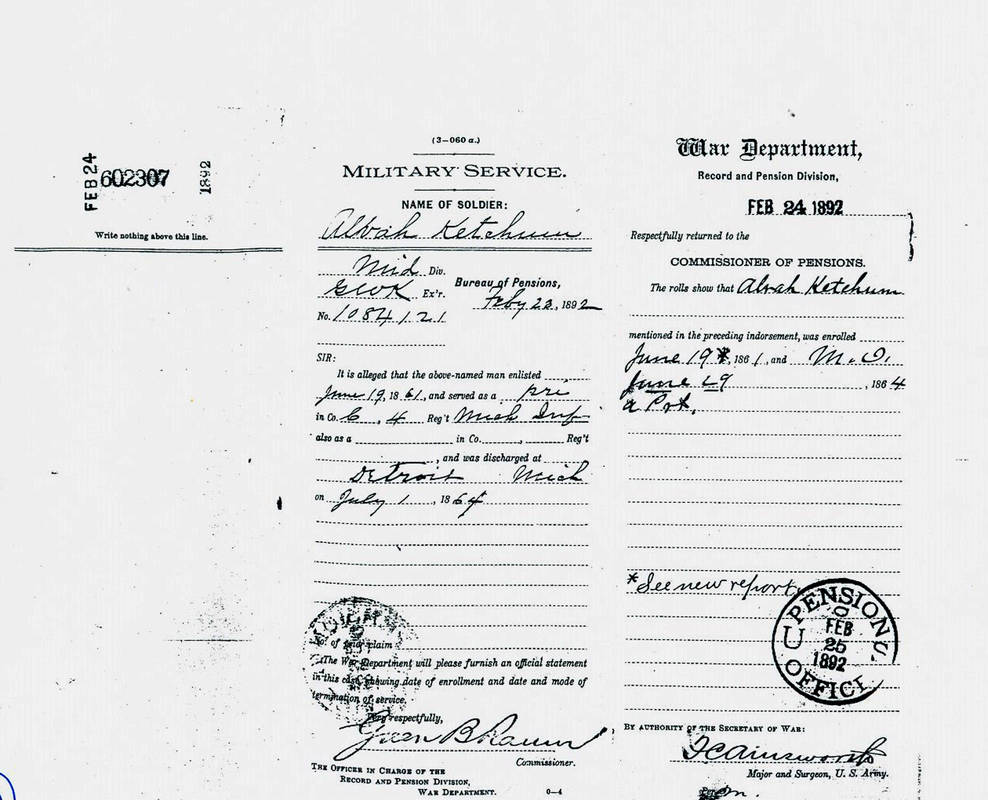 FEB 24
602307
1892
Write nothing above this line.
(3-060 a.)
MILITARY SERVICE.
NAME OF SOLDIER:
Alvah Ketchum
Mid Div.
GWK Ex'r.
Bureau of Pensions,
Feby 23, 1892
No. 1084121
SIR:
It is alleged that the above-named man enlisted
June 19, 1861, and served as a pri
in Co. C, 4 Reg't Mich Inf
also as a in Co. , Reg't
, and was discharged at
Detroit Mich
on July 1, 1864
No. of prior claim
The War Department will please furnish an official statement
in this case showing date of enrollment and date and mode of
termination of service.
Very respectfully,
Green B Raum
Commissioner.
THE OFFICER IN CHARGE OF THE
RECORD AND PENSION DIVISION,
WAR DEPARTMENT.
0-4
War Department,
Record and Pension Division,
FEB 24 1892
Respectfully returned to the
COMMISSIONER OF PENSIONS.
The rolls show that Alvah Ketchum
mentioned in the preceding indorsement, was enrolled
June 19*, 1861, and M.O.
June 29, 1864
a Pvt.
*See new report
U. PENSION OFFICE
FEB
25
1892
BY AUTHORITY OF THE SECRETARY OF WAR:
F C Ainsworth
Major and Surgeon, U. S. Army.